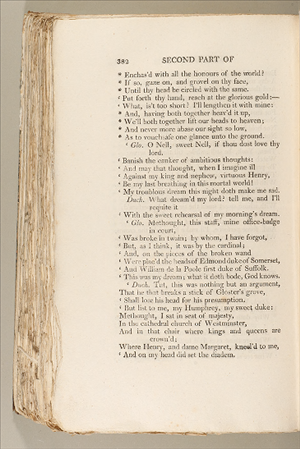 382 SECOND PART OF
* Enchas'd with all the honours of the world?
* If so, gaze on, and grovel on thy face,
* Until thy head be circled with the same.
' Put forth thy hand, reach at the glorious gold:—
' What, is't too short? I'll lengthen it with mine:
* And, having both together heav'd it up,
* We'll both together lift our heads to heaven;
* And never more abase our sight so low,
* As to vouchsafe one glance unto the ground.
' Glo. O Nell, sweet Nell, if thou dost love thy
lord,
' Banish the canker of ambitious thoughts:
' And may that thought, when I imagine ill
' Against my king and nephew, virtuous Henry,
' Be my last breathing in this mortal world!
' My troublous dream this night doth make me sad.
' Duch. What dream'd my lord? tell me, and I'll
requite it
' With the sweet rehearsal of my morning's dream.
' Glo. Methought, this staff, mine office-badge
in court,
' Was broke in twain; by whom, I have forgot,
' But, as I think, it was by the cardinal;
' And, on the pieces of the broken wand
' Were plac'd the heads of Edmond duke of Somerset,
' And William de la Poole first duke of Suffolk.
' This was my dream; what it doth bode, God knows.
' Duch. Tut, this was nothing but an argument,
That he that breaks a stick of Gloster's grove,
' Shall lose his head for his presumption.
' But list to me, my Humphrey, my sweet duke:
Methought, I sat in seat of majesty,
In the cathedral church of Westminster,
And in that chair where kings and queens are
crown'd;
Where Henry, and dame Margaret, kneel'd to me,
' And on my head did set the diadem.